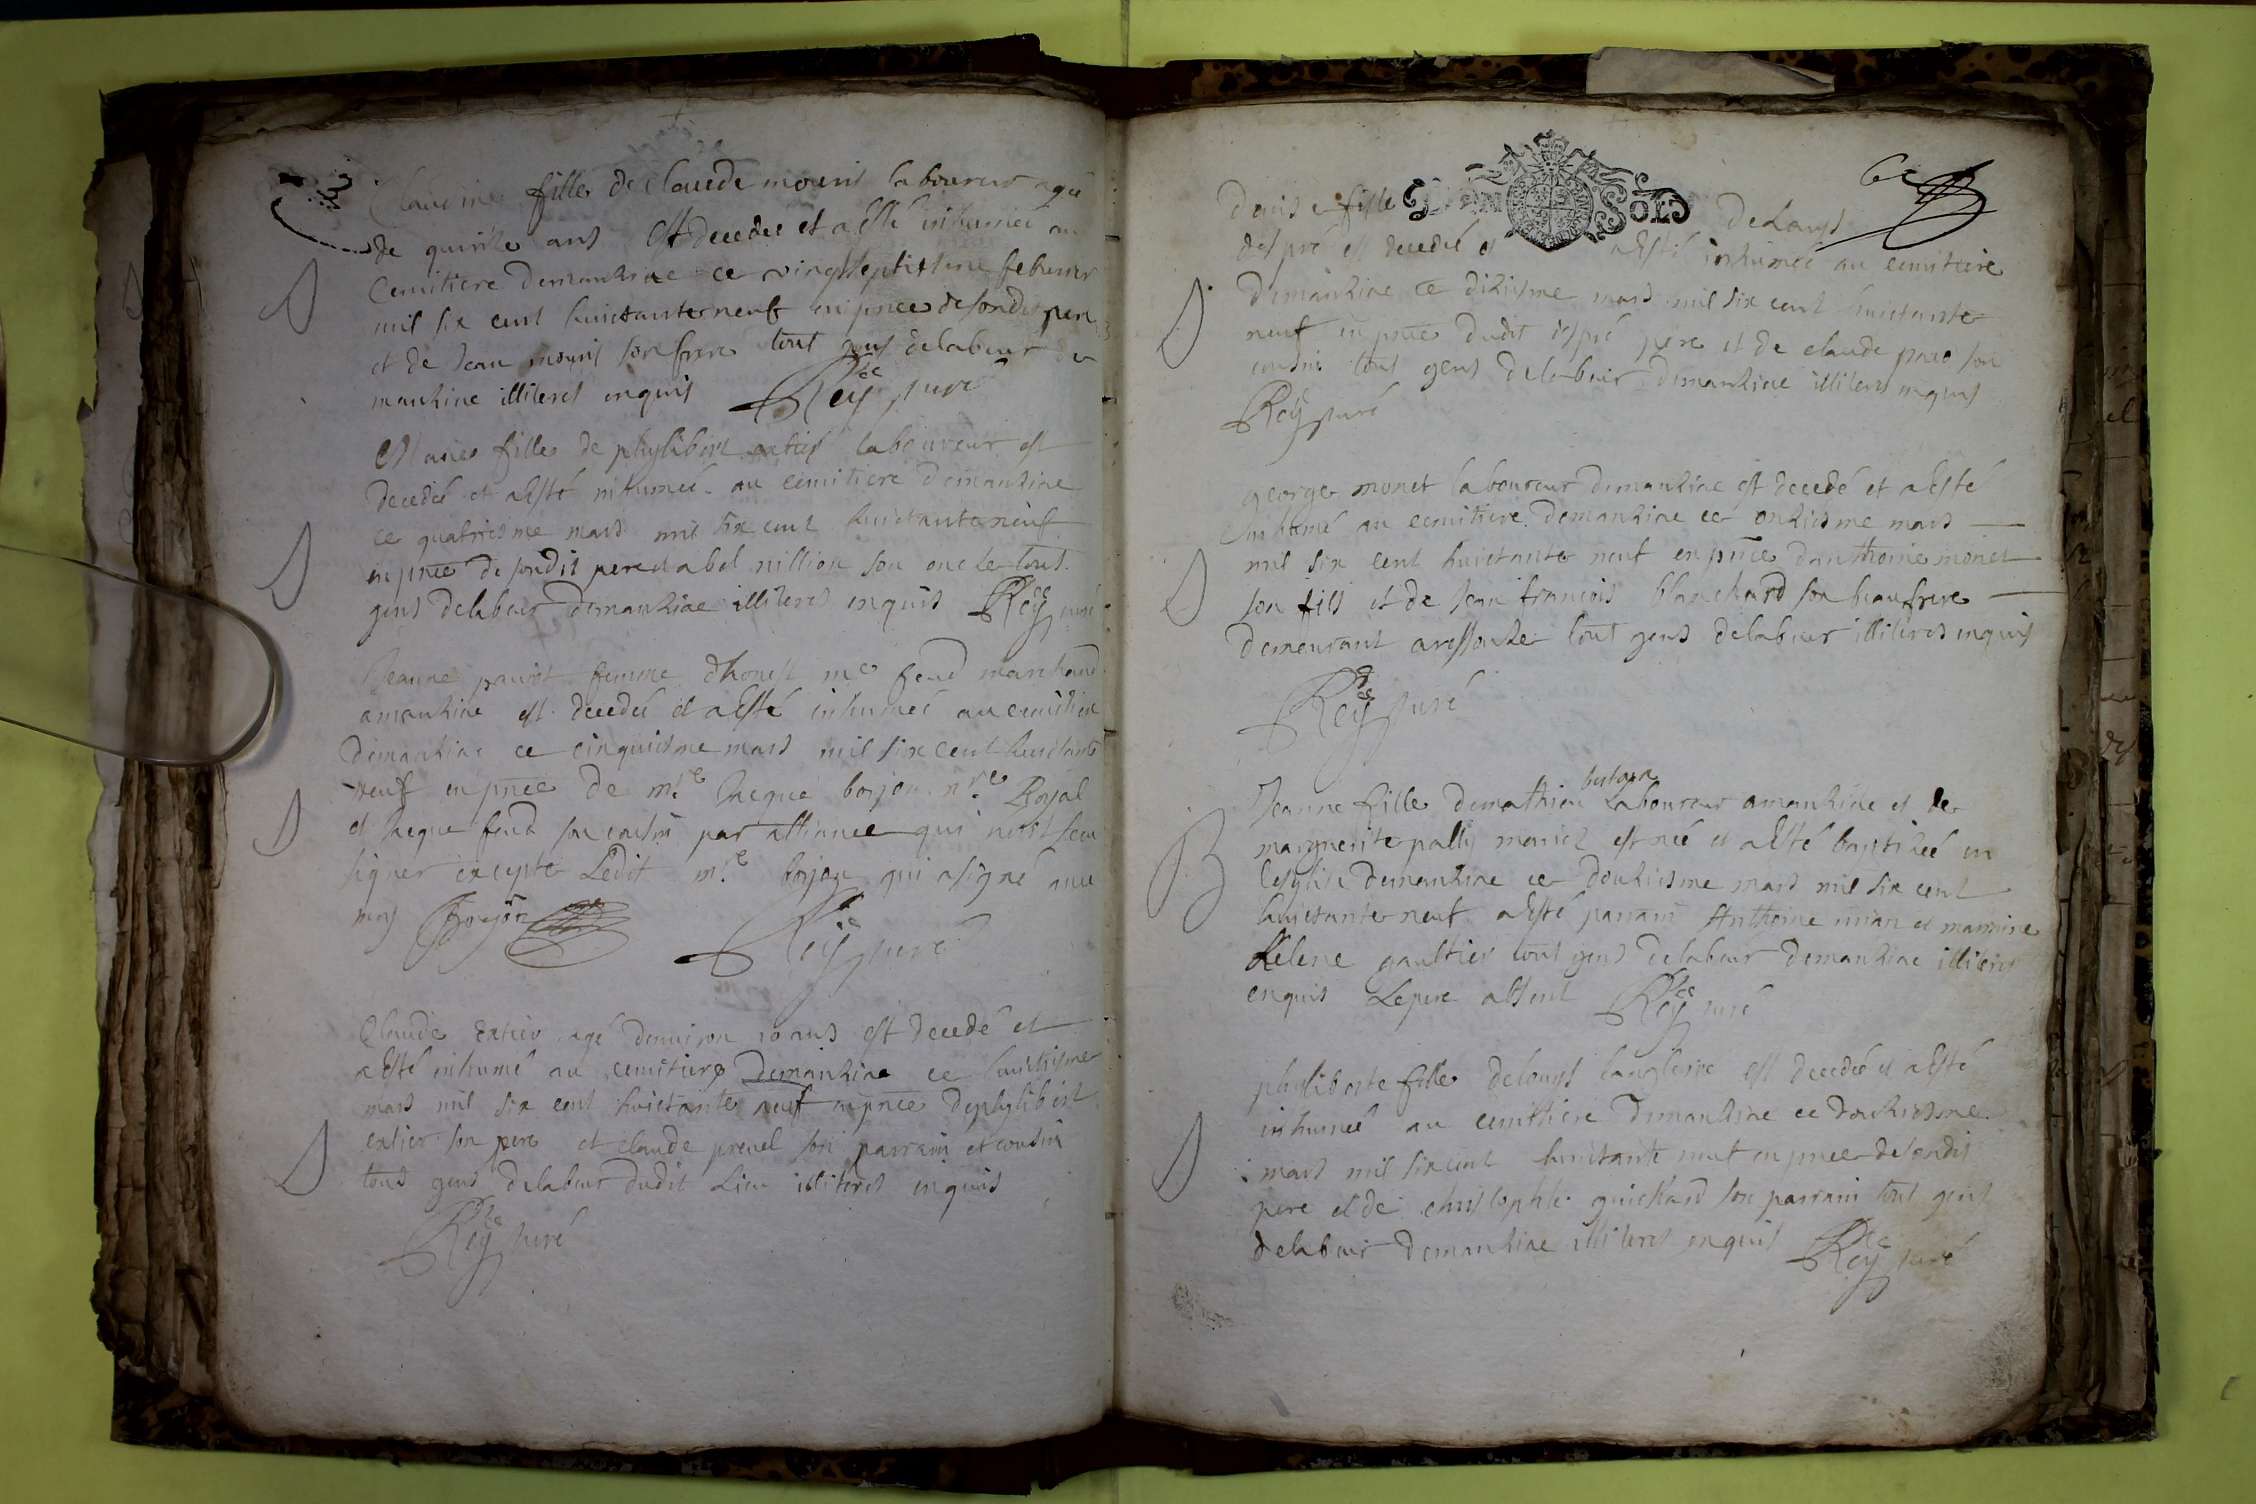 Claudine fille de Claude mouris laboureur agé
de quinze ans est decedee et a esté inhumeé au
Cemitiere demanziac ce vingtseptiesme febvrier
mil six cent huictante neuf en pnce de sondit pere
et de Jean mouris son frere tout gens delabeur de
manziac illiteres enquis Rey curé
Marie fille de phylibert laboureur est
decedeé et a esté inhumeé au cemitiere demanziac
ce quatriesme mars mil six cent huictante neuf
en pnce de sondit pere et abel nillion son oncle tous
gens delabeur demanziac illiteres enquis Rey curé
Jeanne femme dhonest me feud marchand
amanziac est decedeé et a esté inhumeé au cemitiere
demanziac ce cinquiesme mars mil six cent huictante
neuf en pnce de mre Jaque borjon nre Royal
et Jaque feud son cousin par alliance qui n'ont sceu
signer excepte Ledit mre borjon qui a signé avec
moy Borjon Rey curé
Claude extier agé denviron 10 ans est decedé et
a esté inhumé au cemitiere demanziac ce huictiesme
mars mil six cent huictante neuf en pnce dephylibert
extier son pere et claude prevel son parrain et cousin
tous gens delabeur dudit Lieu illiteres enquis
Rey curé
6e
SOL
Denise fille de Louys
despré est decedeé et a esté inhumeé au cemitiere
demanziac ce dixiesme mars mil six cent huictante
neuf en pnce dudit despré pere et de claude son
cousin tous gens delabeur demanziac illiteres enquis
Rey curé
george monet laboureur demanziac est decedé et a esté
inhumé au cemitiere demanziac ce onziesme mars
mil six cent huictante neuf en pnce danthoine monet
son fils et de Jean francois blanchard son beaufrere
demeurant tout gens delabeur illiteres enquis
Rey curé
Jeanne fille demathieu Laboureur amanziac et de
marguerite pally mariez est neé et a esté baptizeé en
lesglise demanziac ce douziesme mars mil six cent
huictante neuf a esté parrain Anthoine et marrine
helene gaultier tout gens delabeur demanziac illiteres
enquis Le pere absent Rey curé
phyliberte fille delouys est decedeé et a esté
inhumeé au cemittiere demanziac ce douziesme
mars mil six cent huictante neuf en pnce de sondit
pere et de christophle guichard son parrain tout gens
delabeur demanziac illiteres enquis Rey curé